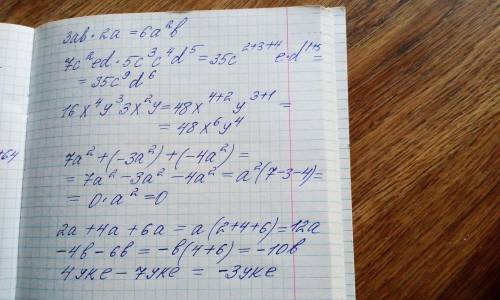 3ab · 2a = 6a²b
7c²ed · 5c³c⁴d⁵ = 35c²⁺³⁺⁴ e·d¹⁺⁵ =
= 35c⁹d⁶
16x⁴y³3x²y = 48x⁴⁺²y³⁺¹ =
= 48x⁶y⁴
+64
7a² + (-3a²) + (-4a²) =
= 7a² - 3a² - 4a² = a²(7-3-4) =
= 0·a² = 0
2a + 4a + 6a = a(2+4+6) = 12a
-4в - 6в = -в(4+6) = -10в
4уке - 7уке = -3уке